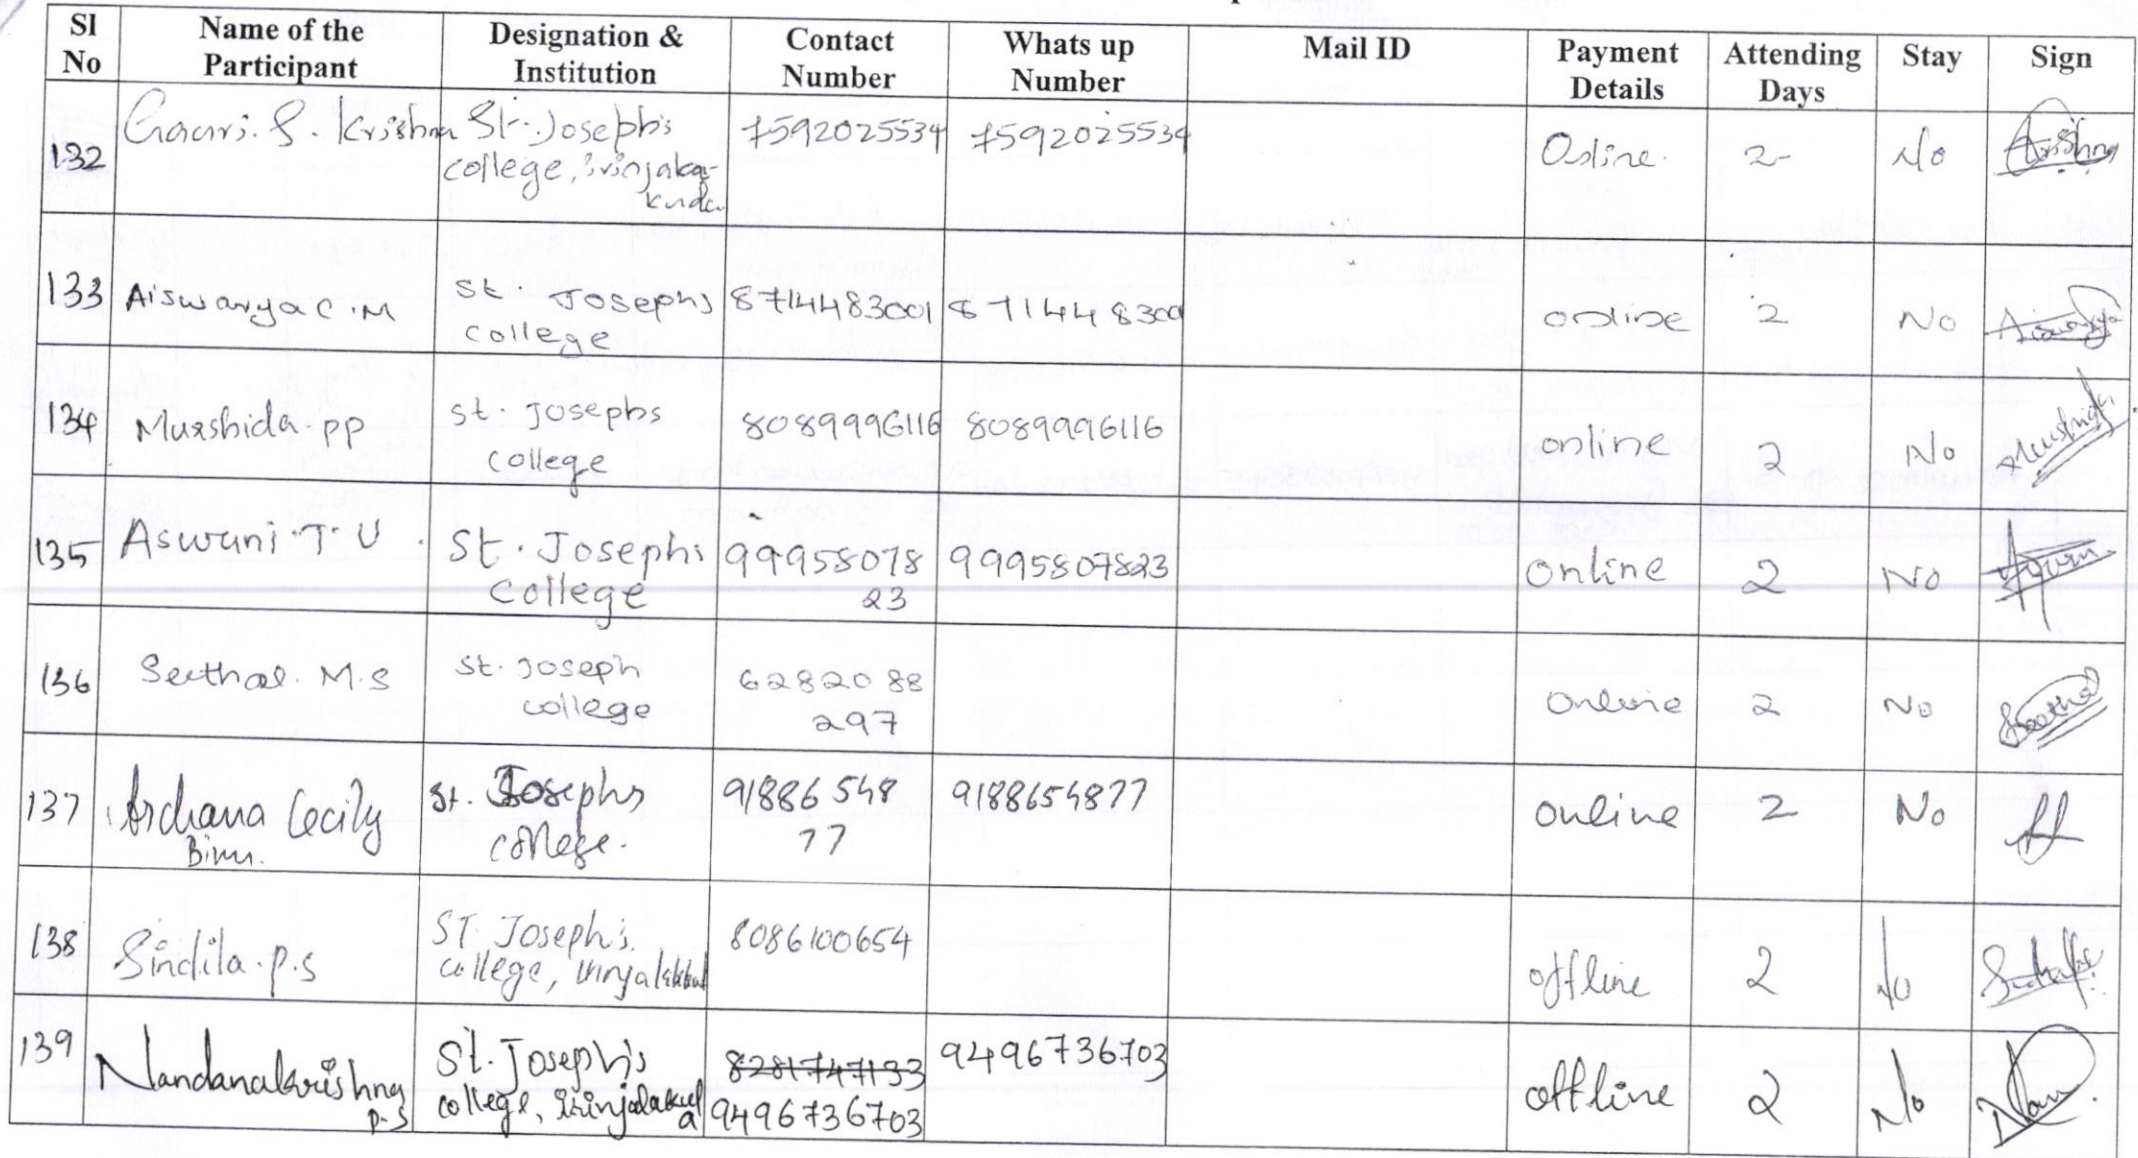 Sl No | Name of the Participant | Designation & Institution | Contact Number | Whats up Number | Mail ID | Payment Details | Attending Days | Stay | Sign
132 | Gouri. S. Krishna | St. Joseph's college, irinjaka-kuda | 7592025534 | 7592025534 | | Online. | 2 | No | Krishna
133 | Aiswarya C.M | St. Josephs college | 8714483001 | 871448300 | | online | 2 | No | Aiswarya
134 | Murshida.pp | St. Josephs college | 8089996116 | 8089996116 | | online | 2 | No | Murshida
135 | Aswani.T.U. | St. Josephs college | 9995807823 | 9995807823 | | Online | 2 | No |
136 | Seethal. M.S | St. Joseph college | 6282088297 | | | Online | 2 | No | Seethal
137 | Archana Cecily Binu. | St. Josephs college. | 9188654877 | 9188654877 | | online | 2 | No |
138 | Sindila.p.s | ST. Joseph's college, | 8086100654 | | | offline | 2 | No |
139 | Nandanakrishna p.s | St. Joseph's college, irinjalakuda | 8281747133 9496736703 | 9496736703 | | offline | 2 | No |